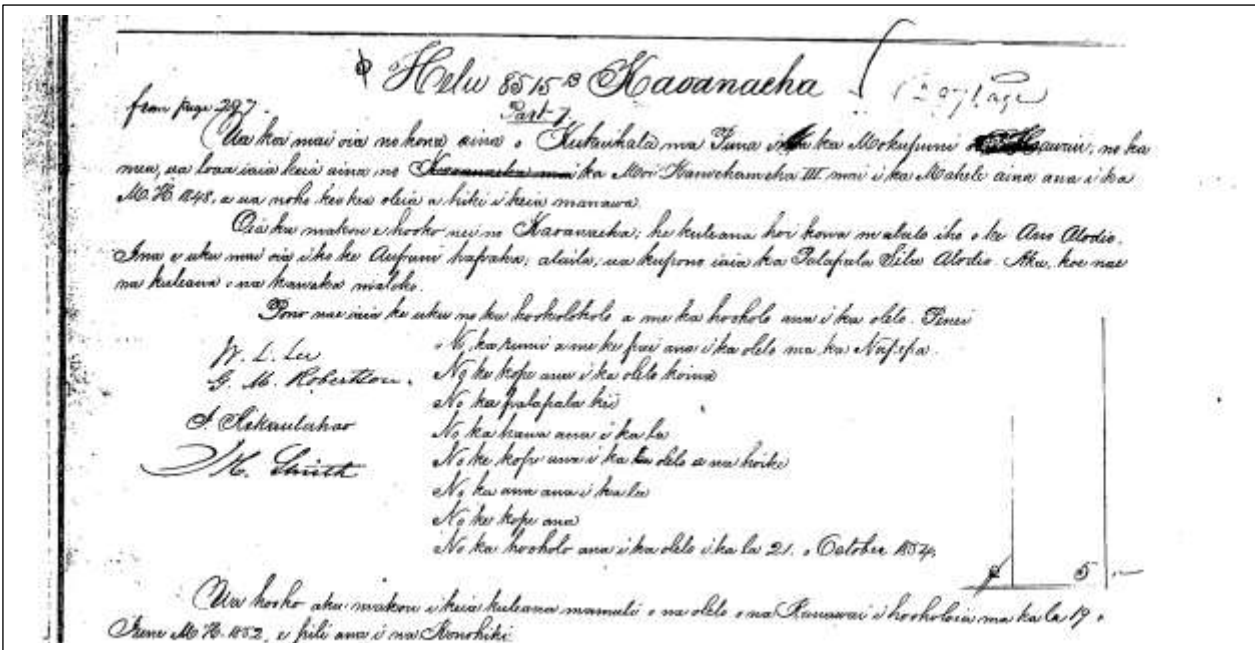 Helu 8515 B Kaoanaeha
( 297 Page )
from page 297.
Part 7
Ua koi mai oia no kona aina o Keekauhala ma Puna i ka Mokupuni o Hawaii, no ka
mea, ua loaa iaia keia aina no Kaoanaeha ma ka Moi Kamehameha III mai i ka Mahele aina ana i ka
M.H. 1848, a ua noho keakea oleia a hiki i keia manawa.
Oia ka makou e hooko nei no Kaoanaeha; he kuleana hoi kona malalo iho o ke Ano Alodio.
Ina e uku mai oia i ko ke Aupuni hapaha; alaila, ua kupono iaia ka Palapala Sila Alodio. Aka, koe nae
na kuleana o na kanaka maloko.
Pono nae iaia ke uku no ka hookolokolo a me ka hooholo ana i ka olelo. Penei
W. L. Lee
No ka rumi a me ke pai ana i ka olelo ma ka Nupepa.
G. M. Robertson.
No ke kope ana i ka olelo koina
No ka palapala kii
J. Kekaulahao
No ka hana ana i ka la
J. H. Smith
No ke kope ana i ka olelo a na hoike
No ka ana ana i ka la
No ke kope ana
No ka hooholo ana i ka olelo i ka la 21. o October 1854,
5
Ua hooko aku makou i keia kuleana mamuli o na olelo o na Kanawai i hooholoia ma ka la 19 o
Iune M.H. 1852, e pili ana i na Konohiki